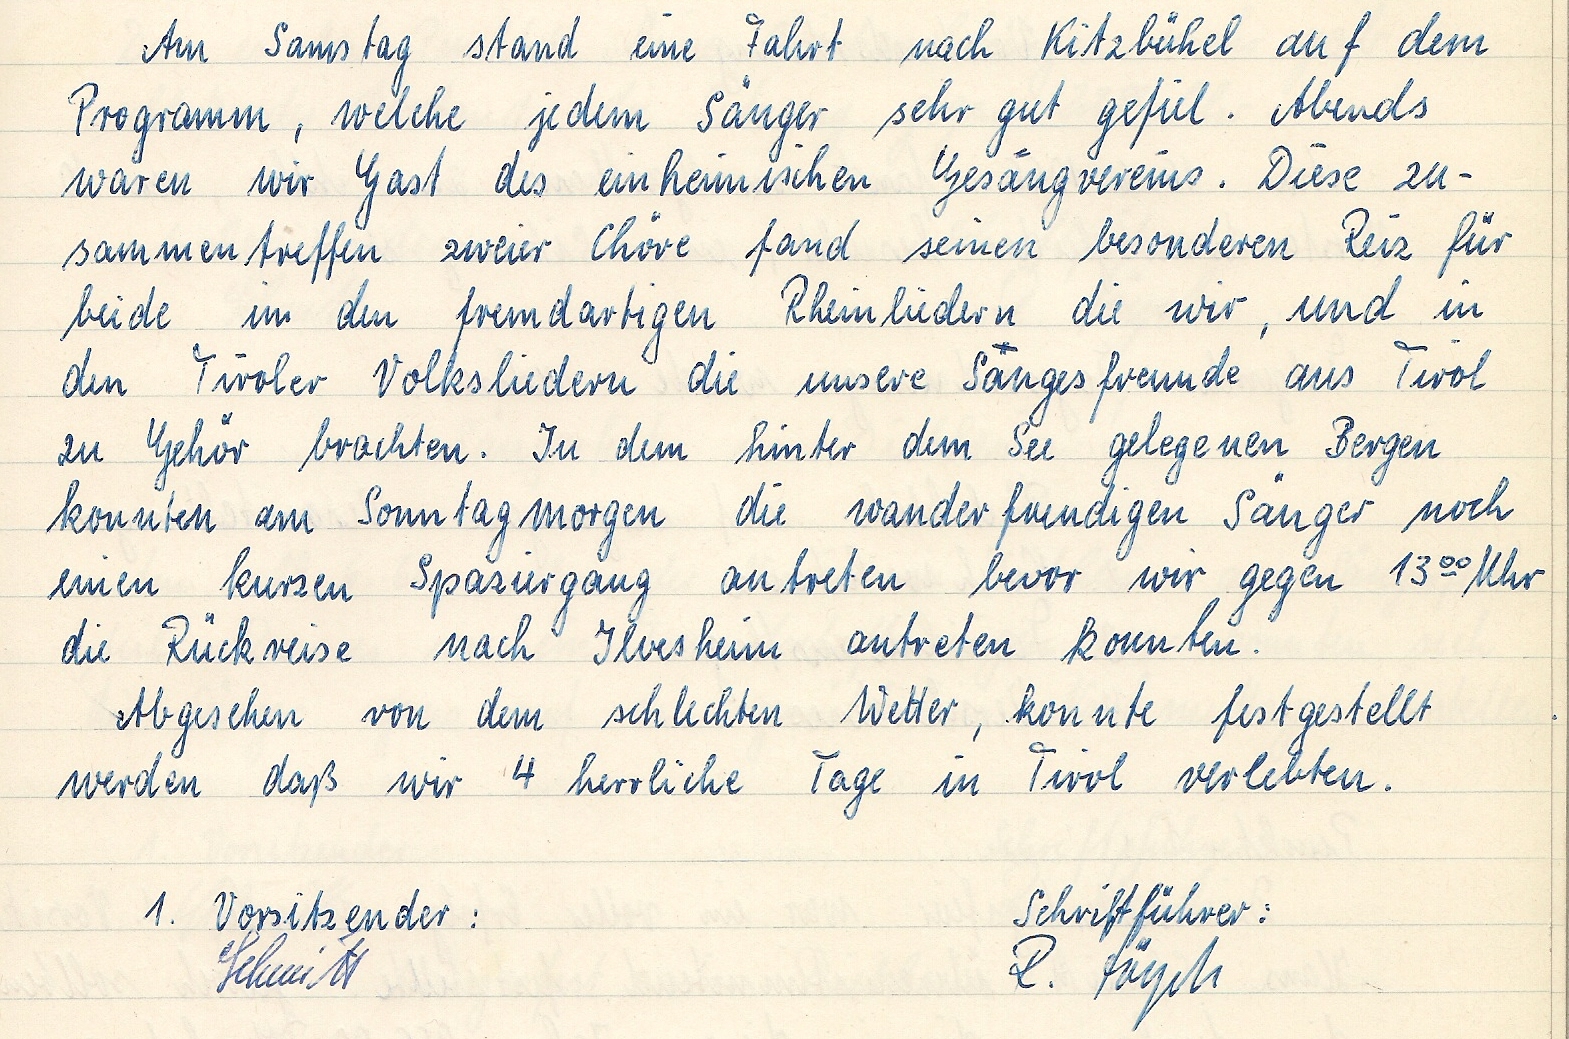 Am Samstag stand eine Fahrt nach Kitzbühel auf dem
Programm, welche jedem Sänger sehr gut gefiel. Abends
waren wir Gast des einheimischen Gesangvereins. Diese zu-
sammentreffen zweier Chöre fand seinen besonderen Reiz für
beide in den fremdartigen Rheinliedern die wir, und in
den Tiroler Volksliedern die unsere Sangesfreunde aus Tirol
zu Gehör brachten. In dem hinter dem See gelegenen Bergen
konnten am Sonntagmorgen die wanderfreudigen Sänger noch
einen kurzen Spaziergang antreten bevor wir gegen 13⁰⁰ Uhr
die Rückreise nach Ilvesheim antreten konnten.
Abgesehen von dem schlechten Wetter, konnte festgestellt
werden daß wir 4 herrliche Tage in Tirol verlebten.
1. Vorsitzender: Schriftführer:
Schmitt R.